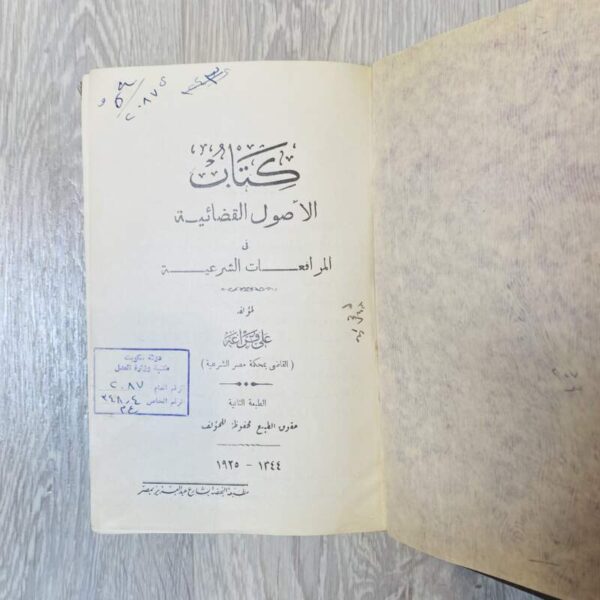 ٢٠٨٧
كِتَابُ
الأصول القضائية
فى
المرافعات الشرعية
لمؤلفه
على قراعة
(القاضى بمحكمة مصر الشرعية)
الطبعة الثانية
حقوق الطبع محفوظة للمؤلف
١٣٤٤ - ١٩٢٥
مطبعة النهضة بشارع عبد العزيز بمصر
دولة الكويت
مكتبة وزارة العدل
الرقم العام ٢٠٨٧
الرقم الخاص ٣٤٨,٤